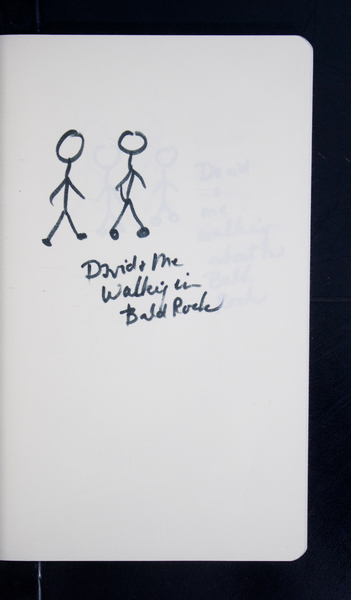 David & Me
Walking in
Bald Rock